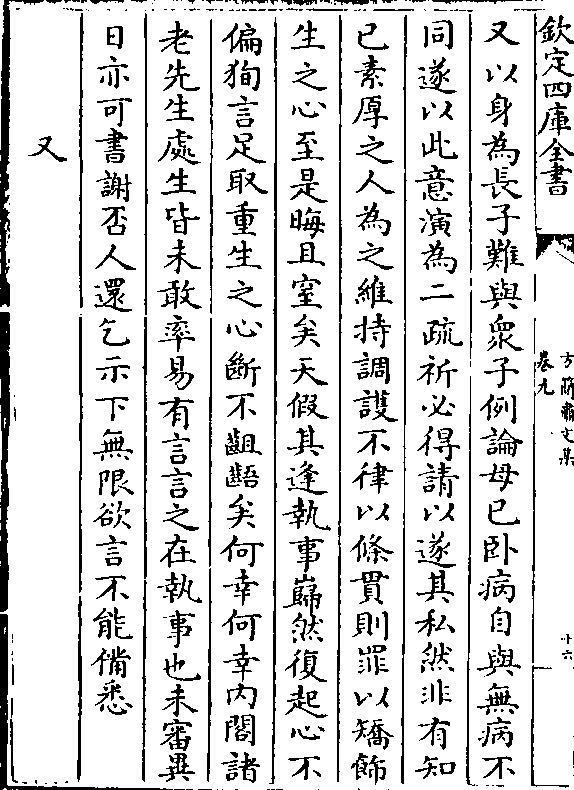 欽定四庫全書
方簡肅文集
卷九
十六
又以身為長子難與衆子例論母已卧病自與無病不
同遂以此意演為二疏祈必得請以遂其私然非有知
已素厚之人為之維持調護不律以條貫則罪以矯飾
生之心至是晦且窒矣天假其逢執事巋然復起心不
偏狥言足取重生之心斷不齟齬矣何幸何幸内閣諸
老先生處生皆未敢率易有言言之在執事也未審異
日亦可書謝否人還乞示下無限欲言不能備悉
又